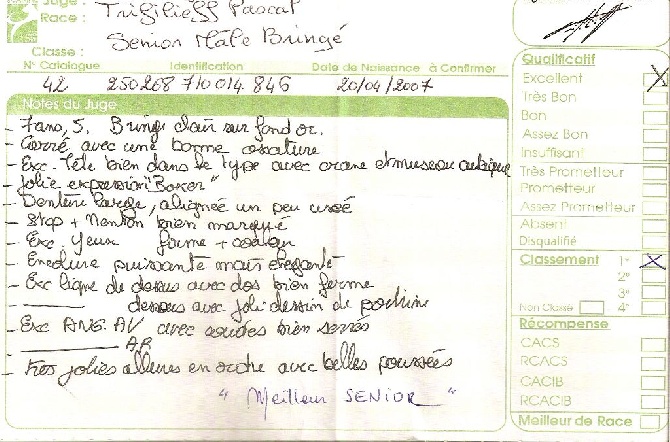 Juge : Trifilieff Pascal
Race :
Senior Mâle Bringé
Classe :
N° Catalogue Identification Date de Naissance à Confirmer
42 250268 710014 846 20/04/2007
Notes du Juge
- 7 ans, 5. Bringé clair sur fond or.
- Carré avec une bonne ossature
- Exc. Tête bien dans le type avec crane et museau cubique
- Jolie expression "Boxer"
- Denture large, alignée un peu usée
- Stop + Menton bien marqué
- Exc. Yeux forme + couleur
- Encolure puissante mais élégante
- Exc ligne de dessus avec dos bien ferme
- —— dessous avec joli dessin de poitrine
- Exc ANG. AV avec coudes bien serrés
- —— AR
- très jolies allures en ordre avec belles poussées
" Meilleur SENIOR "
Qualificatif
Excellent X
Très Bon
Bon
Assez Bon
Insuffisant
Très Prometteur
Prometteur
Assez Prometteur
Absent
Disqualifié
Classement 1° X
2°
3°
Non Classé 4°
Récompense
CACS
RCACS
CACIB
RCACIB
Meilleur de Race